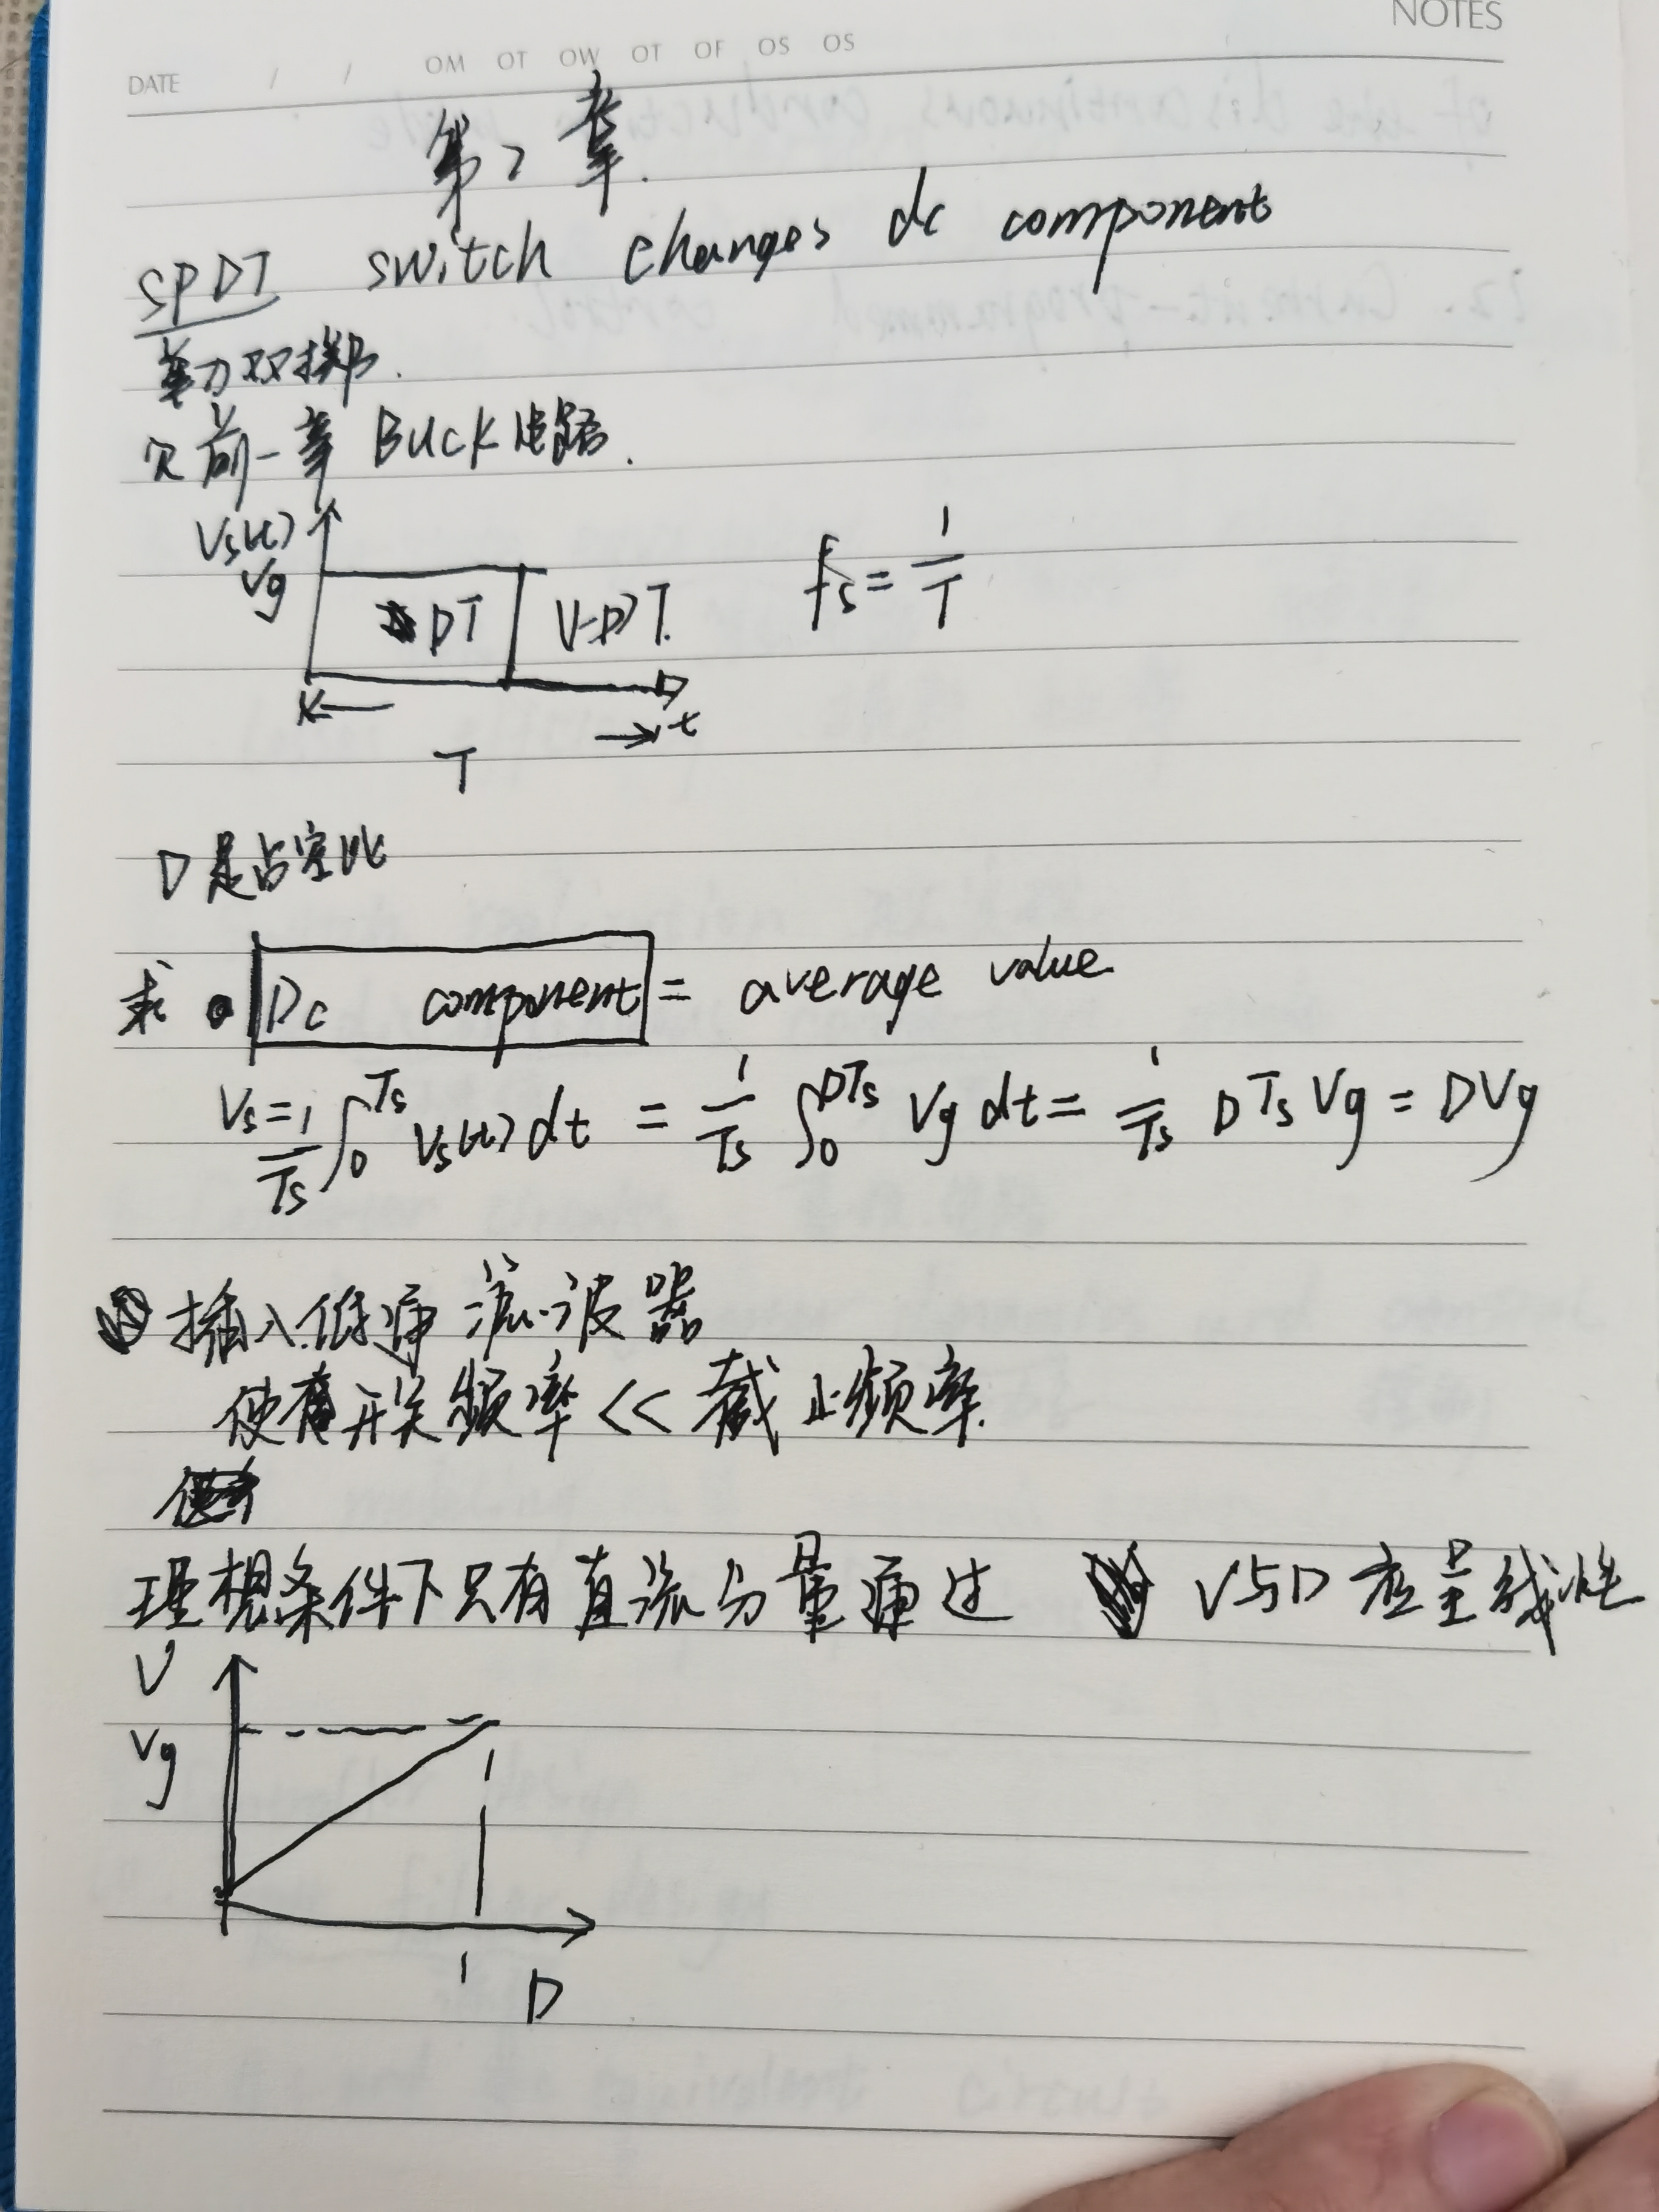 NOTES
DATE / / OM OT OW OT OF OS OS
第2章.
SPDT switch changes dc component
单刀双掷.
前一章 Buck电路.
Vs(t)
Vg
DT (1-D)T.
fs = 1/T
t
T
D是占空比
求 Dc component = average value
Vs = 1/Ts ∫0^Ts Vs(t) dt = 1/Ts ∫0^DTs Vg dt = 1/Ts DTs Vg = DVg
插入低通滤波器
使开关频率 << 截止频率.
理想条件下只有直流分量通过 V与D应呈线性
V
Vg
1 D